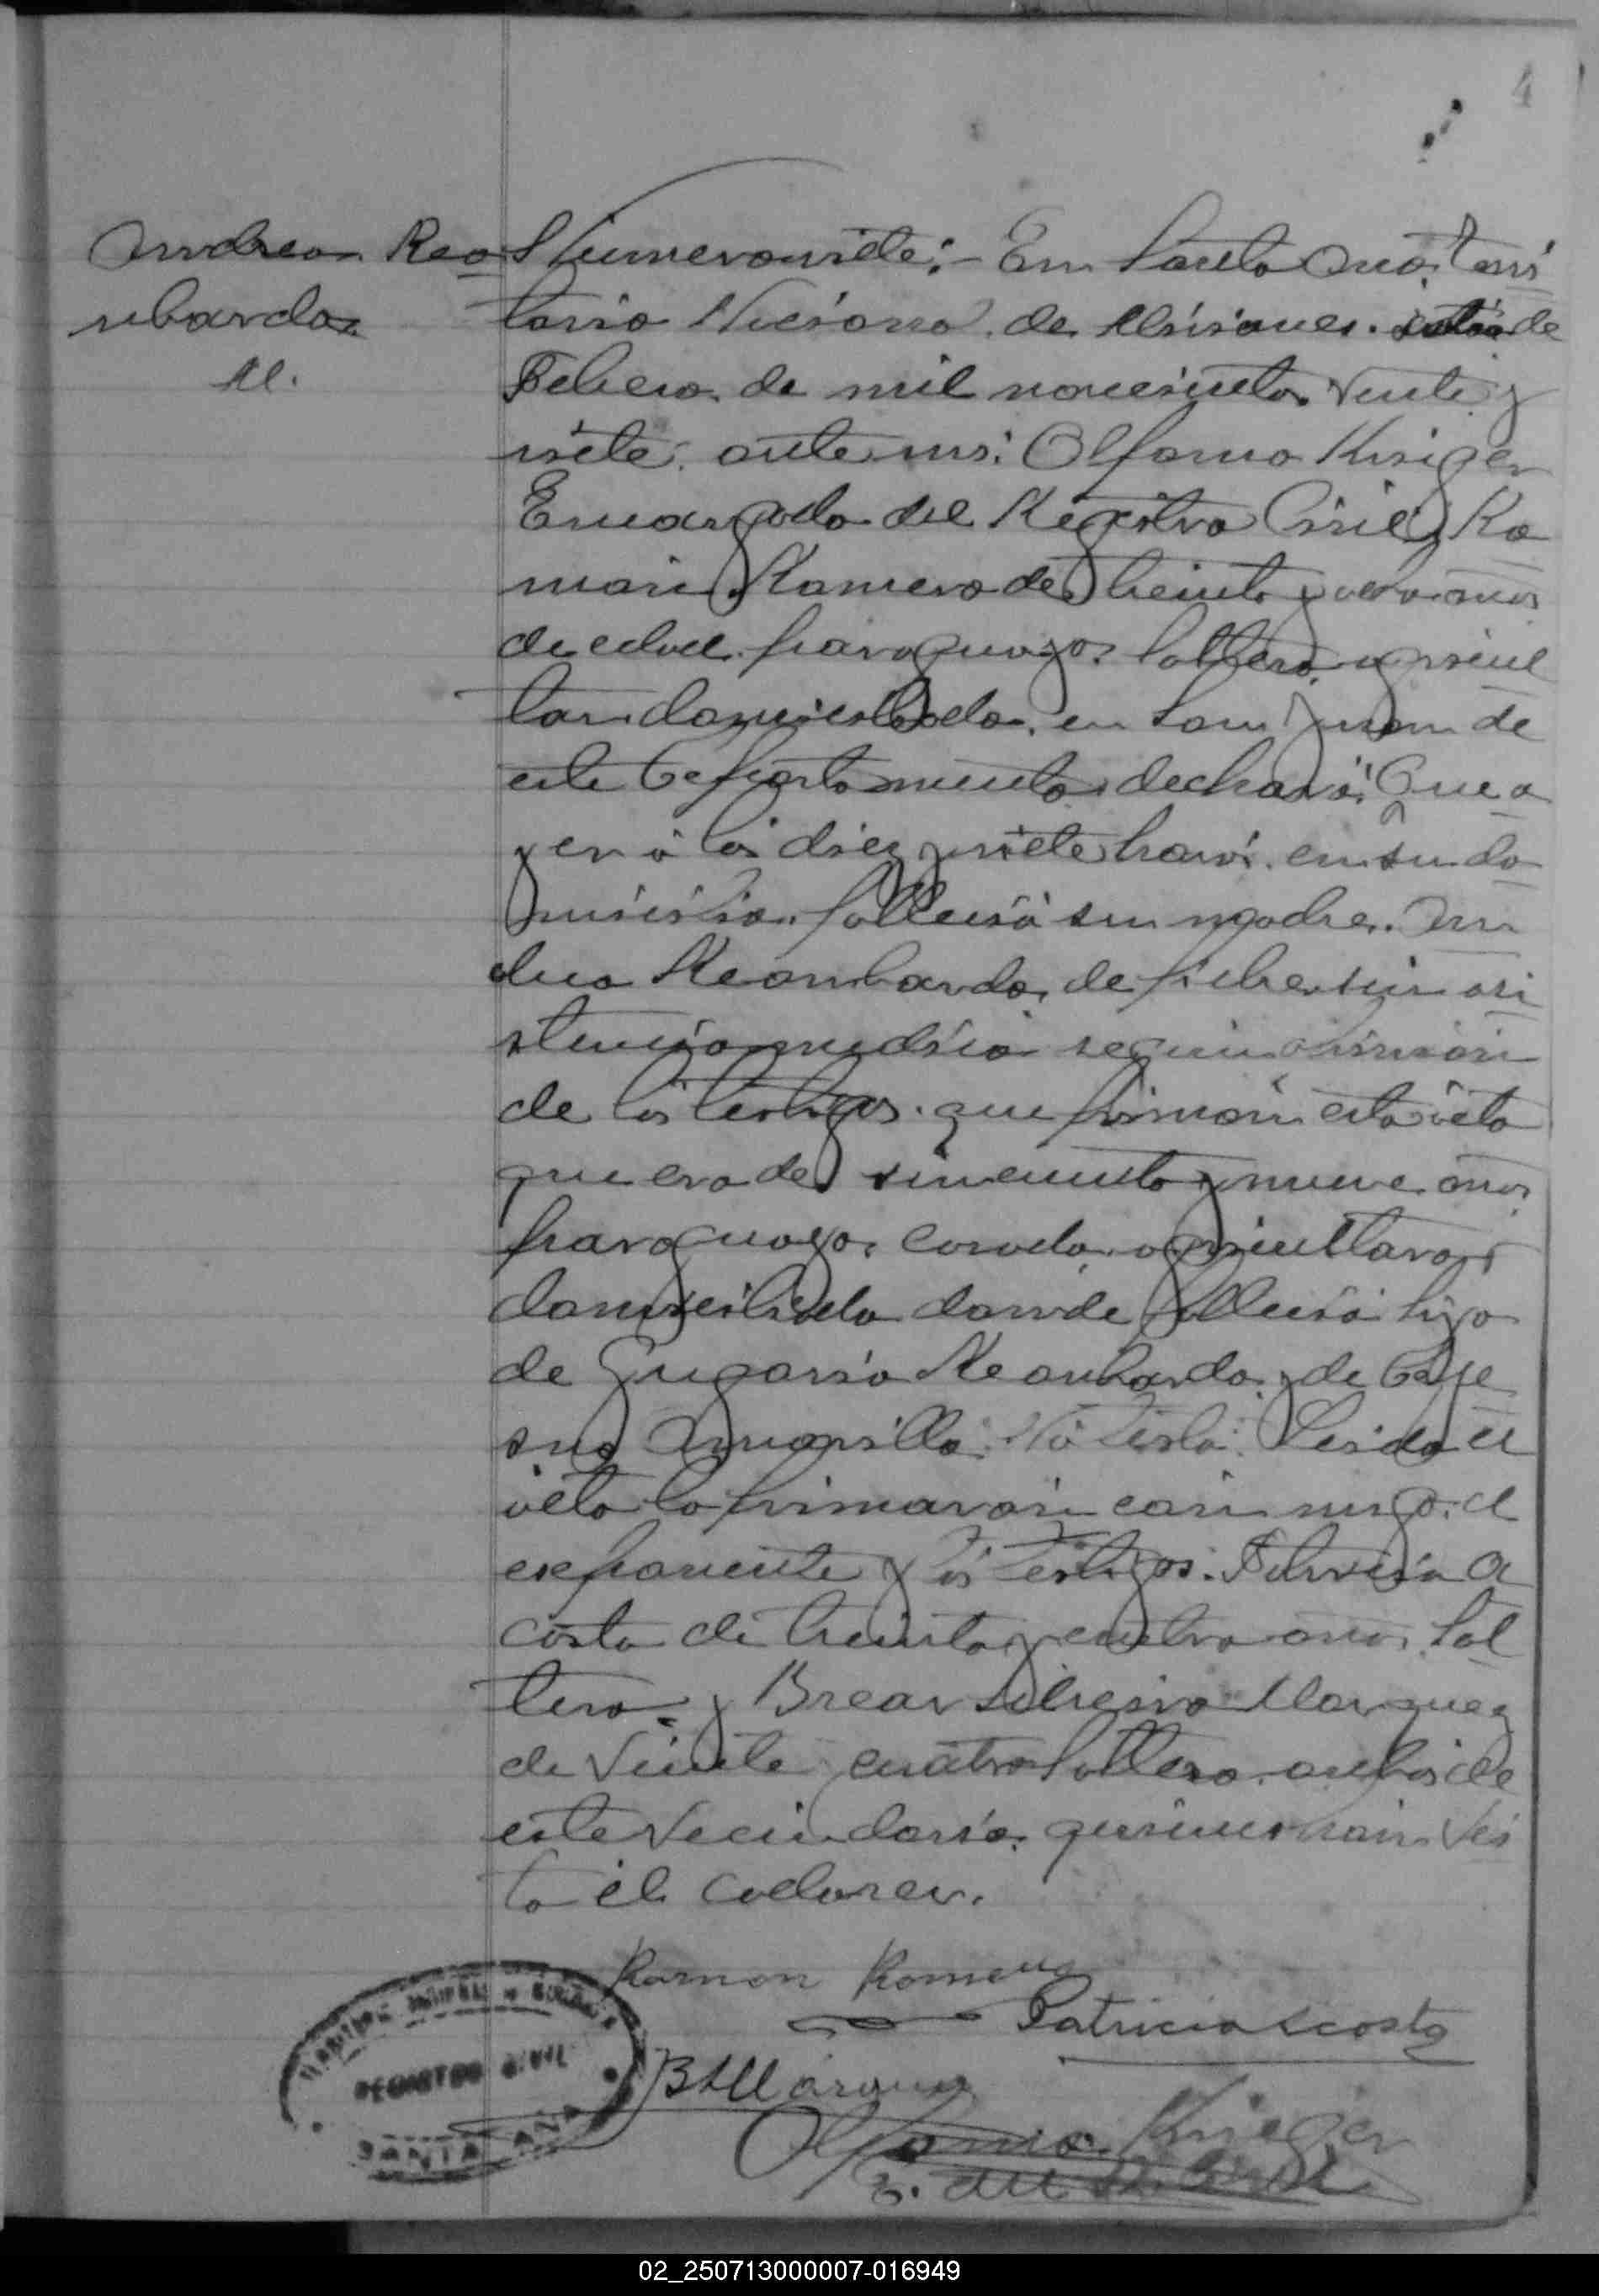 4
Andrea Rea
Numero siete:- En Santa Ana, Terri
nbarda
torio Nacional de Misiones. siete de
M.
Febrero de mil novecientos veinte y
siete, ante mi: Alfonso Krieger
Encargado del Registro Civil, Ra
mon Romero de treinta y ocho años
de edad, paraguayo, soltero, agricul
tor domiciliado en San Juan de
este Departamento, declaró: Que a
yer á las diez y siete horas en su do
micilio, falleció su madre. An
drea Reanbarda, de fiebre sin asi
stencia medica según opinion
de los testigos que firman esta acta
que era de cincuenta y nueve años
paraguaya, casada, agricultora,
domiciliada donde falleció hija
de Reanbarda, y de
Amarilla. No testó. Leida el
acta la firmaron con migo, el
exponente y los testigos. A
costa de treinta y cuatro años, sol
tero, y Marquez
de veinte y cuatro soltero, ambos de
este vecindario, quienes han vis
to el cadaver.
Ramon Romero
Patricio Acosta
REGISTRO CIVIL
SANTA ANA
B S Marquez
Alfonso Krieger
02_250713000007-016949